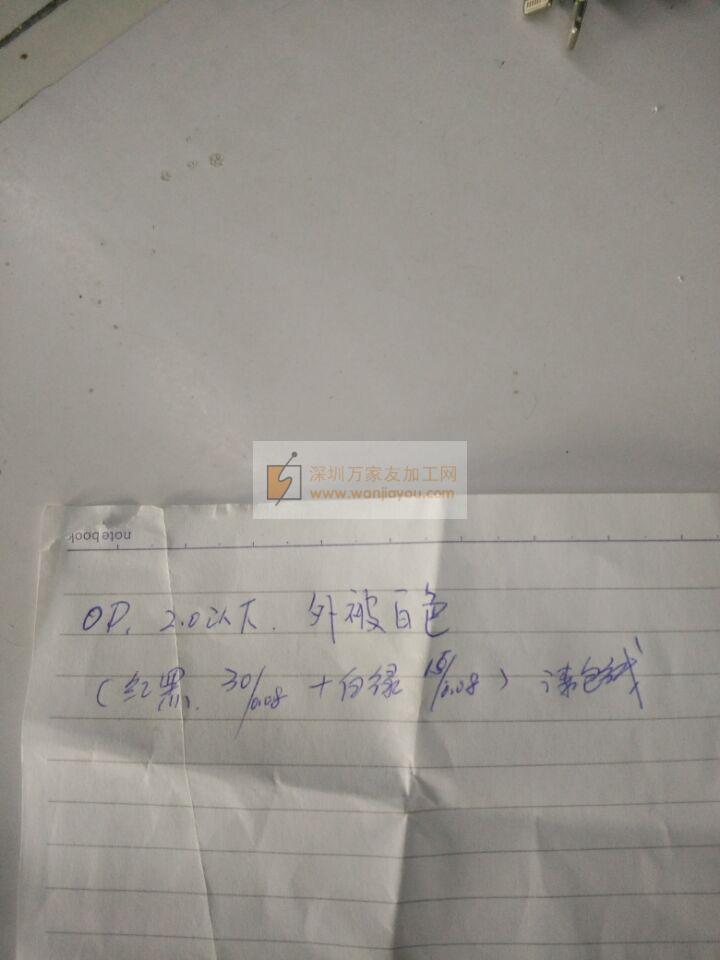 深圳万家友加工网
www.wanjiayou.com
notebook
OD, 2.0以下. 外被白色
(红黑. 30/0.08 + 白绿 15/0.08) 漆包线